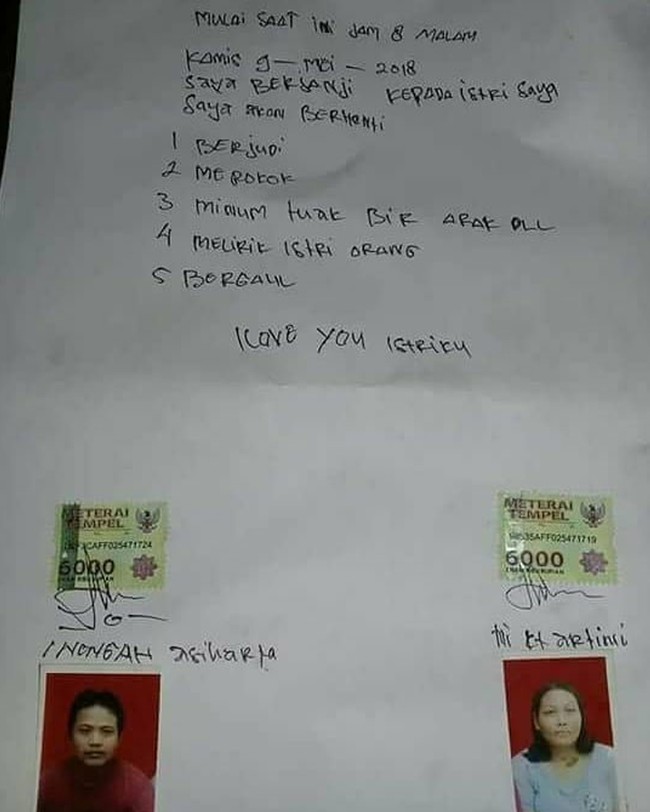 MULAI SAAT ini JAM 8 MALAM
KAMIS 9 - MEI - 2018
SAYA BERJANJI KEPADA iSTRi SAYA
SAYA AKAN BERHENTI
1 BERJUDI
2 MEROKOK
3 MINUM tUAK BIR ARAK DLL
4 MELIRIK ISTRI ORANG
5 BERGAUL
I LOVE YOU ISTRIKU
METERAI
TEMPEL
AFF025471724
6000
METERAI
TEMPEL
AFF025471719
6000
I NENGAH ASiHARtA
Ni Kt ARTiNi